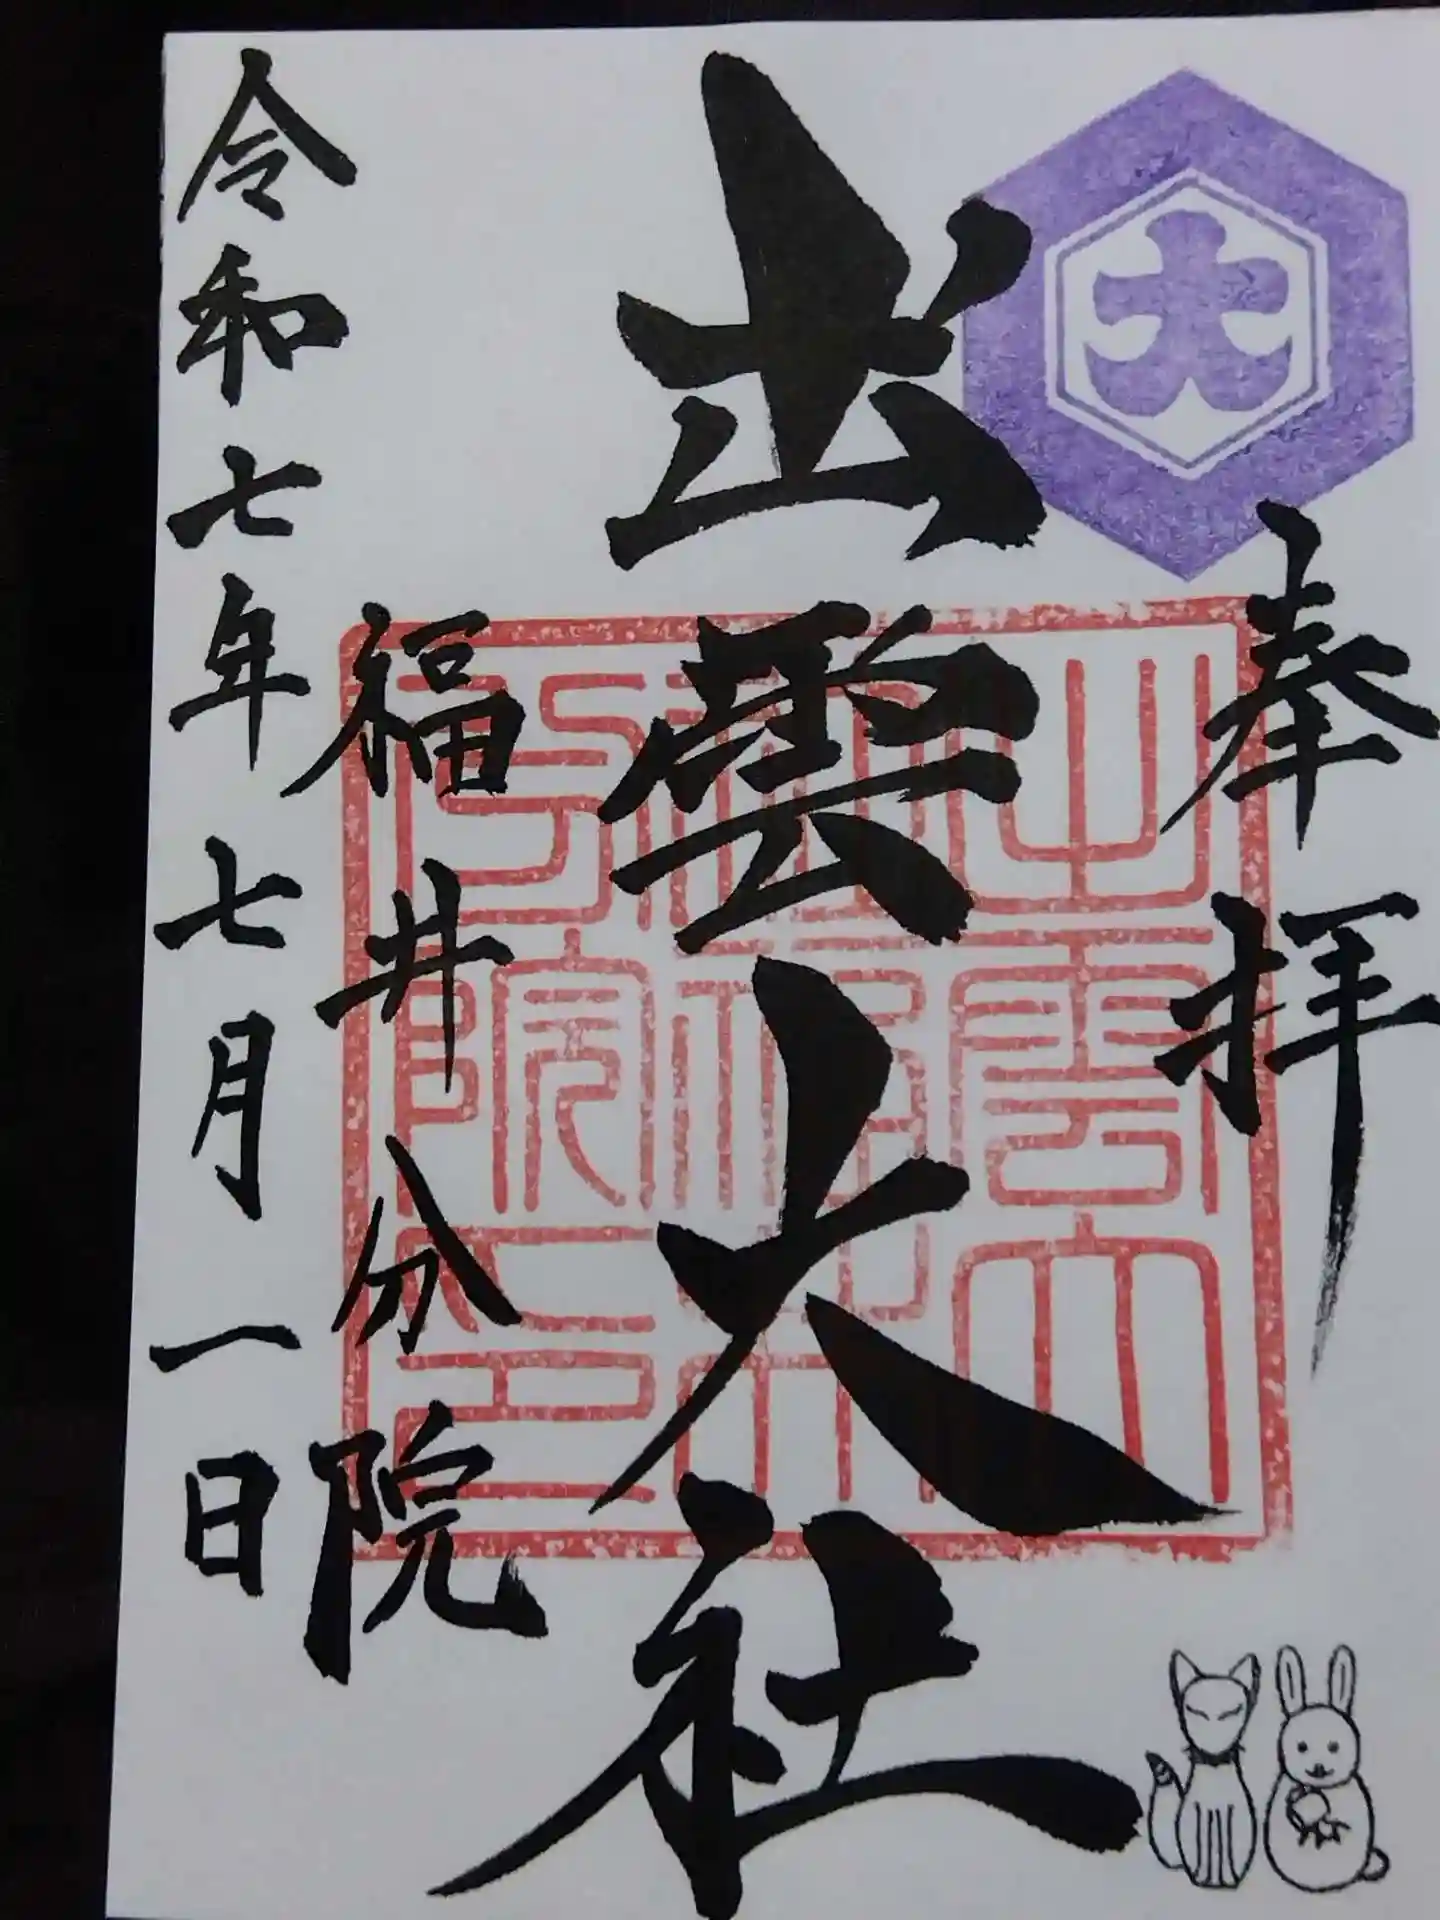 奉拝
大
出雲大社
出雲大社福井分院印
福井分院
令和七年七月一日